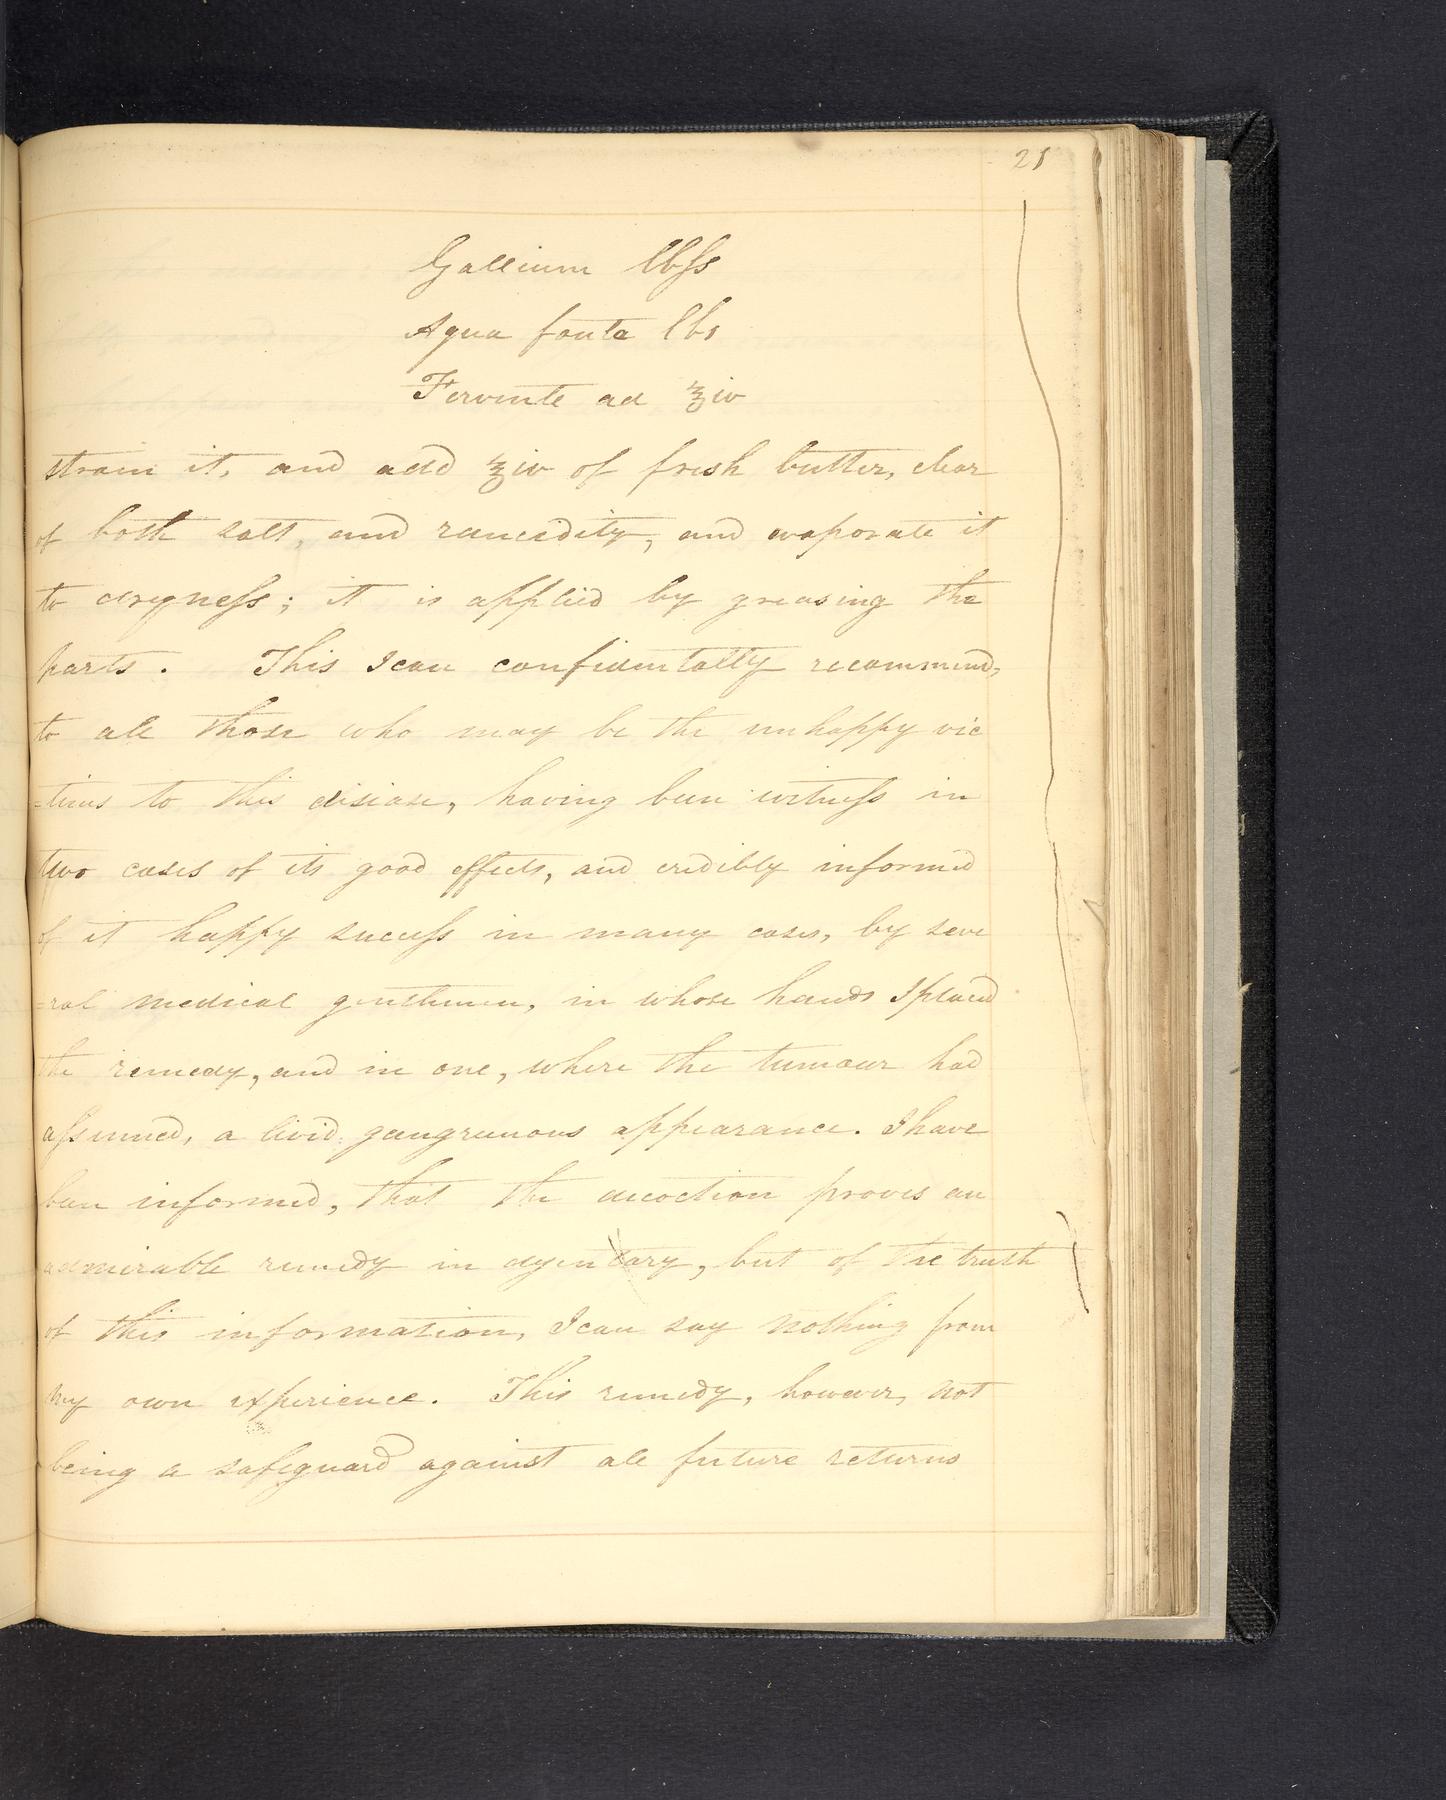 21
Gallium lbſs
Aqua fonta lb1
Fervente ad ʒiv
strain it, and add ʒiv of fresh butter, clear
of both salt, and rancidity, and evaporate it
to drgneſs; it is applied by greasing the
parts. This I can confidentally recommend,
to all those who may be the unhappy vic
=tims to this disease, having been witneſs in
two cases of its good effects, and credibly informed
of it happy succeſs in many cases, by seve
=ral medical gentlemen, in whose hands I placed
the remedy, and in one, where the tumour had
aſsumed, a livid gangrenous appearance. I have
been informed, that the decoction proves an
admirable remedy in dysentary, but of the truth
of this information, I can say nothing from
my own experience. This remedy, however, not
being a safeguard against all future returns